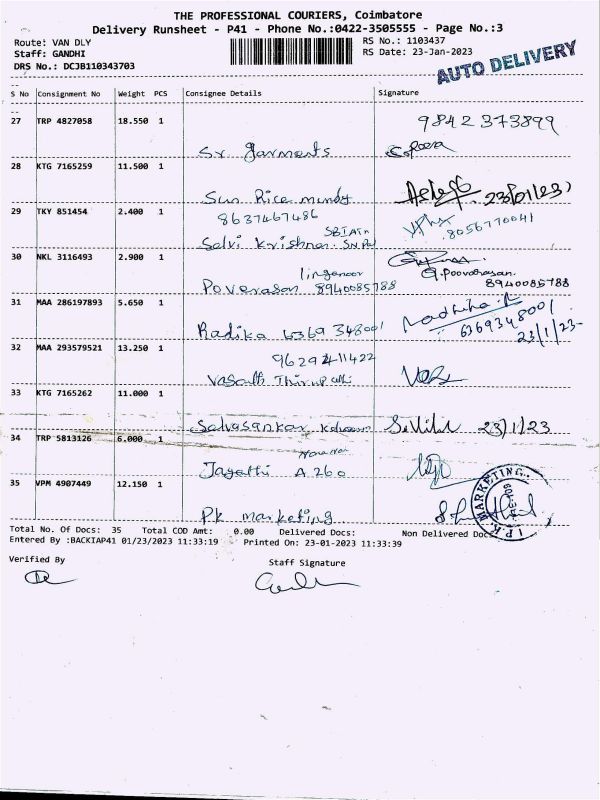 THE PROFESSIONAL COURIERS, Coimbatore
Delivery Runsheet - P41 - Phone No.:0422-3505555 - Page No.:3
Route: VAN DLY RS No.: 1103437
Staff: GANDHI RS Date: 23-Jan-2023
DRS No.: DCJB110343703
AUTO DELIVERY
S No Consignment No Weight PCS Consignee Details Signature
27 TRP 4827058 18.550 1
9842373899
Sr garments
28 KTG 7165259 11.500 1
Sun Rice mundy 23/01/23
29 TKY 851454 2.400 1
8637467486
8056770041
Selvi Krishna
30 NKL 3116493 2.900 1
G.Poovarasan.
Poverasan 8940085788 8940085788
31 MAA 286197893 5.650 1
Radika 6369348001 6369348001
23/1/23
32 MAA 293579521 13.250 1
9629411422
Vasanth
33 KTG 7165262 11.000 1
23/1/23
34 TRP 5813126 6.000 1
Jagathi A.260
35 VPM 4907449 12.150 1
PK marketing
MARKETING
Total No. Of Docs: 35 Total COD Amt: 0.00 Delivered Docs: Non Delivered Docs
Entered By :BACKIAP41 01/23/2023 11:33:19 Printed On: 23-01-2023 11:33:39
Verified By Staff Signature